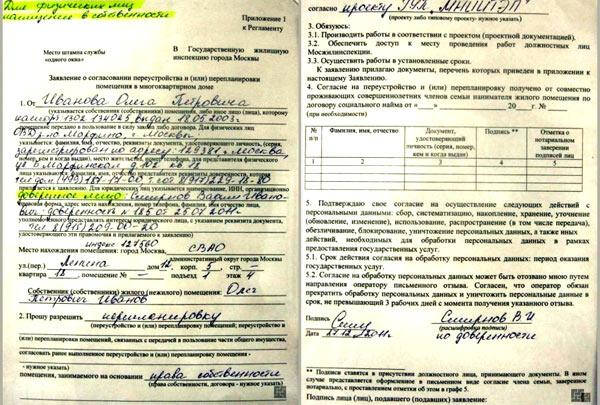 Для физических лиц
помещение в собственности
Приложение 1
к Регламенту
Место штампа службы
«одного окна»
В Государственную жилищную
инспекцию города Москвы
Заявление о согласовании переустройств и (или) перепланировки
помещения в многоквартирном доме
1. От Иванова Олега Петровича
(указывается собственник (собственники) либо иное лицо (лица), которому
паспорт выдан 18.05.2003г.
помещение передано в пользование в силу закона либо договора. Для физических лиц
ОВД по Марфино, г. Москвы
указывается: фамилия, имя, отчество, реквизиты документа, удостоверяющего личность, (серия,
зарегистрирован по адресу: 129381 г. Москва,
номер, кем и когда выдан), место жительства, номер телефона, для представителя физического
лица указываются: фамилия, имя, отчество представителя, реквизиты доверенности, которая
прилагается к заявлению. Для юридических лиц указывается: наименование, ИНН, организационно
доверенное лицо: Смирнов Василий Ивано-
правовая форма, адрес места нахождения, номер телефона, фамилия, имя, отчество лица,
вич, доверенность № от 25.07.2011г.
уполномоченного представлять интересы юридического лица, с указанием реквизитов документа,
тел 8(915)209-00-20
удостоверяющего эти правомочия и прилагаемого к заявлению)
индекс 127560
Место нахождения помещения: город Москва, СВАО
административный округ города Москвы
ул.(пер.) Ленина дом 12 корп. 5 стр. –
квартира 18, помещение № – подъезд 1 этаж 4
Собственник (собственники) жилого (нежилого) помещения: Олег
Петрович Иванов
2. Прошу разрешить перепланировку
(переустройство и (или) перепланировку помещений; переустройство и
(или) перепланировки помещений, связанных с передачей в пользование части общего имущества,
согласовать ранее выполненное переустройство и (или) перепланировку)
помещения, занимаемого на основании права собственности
(права собственности, договора - нужное указать)
согласно проекту ГУП "МНИИТЭП"
(проекту либо типовому проекту- нужное указать)
3. Обязуюсь:
3.1. Производить работы в соответствии с проектом (проектной документацией).
3.2. Обеспечить доступ к месту проведения работ должностных лиц
Мосжилинспекции.
3.3. Осуществить работы в установленные сроки.
К заявлению прилагаю документы, перечень которых приведен в приложении к
настоящему Заявлению.
4. Согласие на переустройство и (или) перепланировку получено от совместно
проживающих совершеннолетних членов семьи нанимателя жилого помещения по договору
социального найма от « » 20 г. №
(при необходимости)
№ п/п
Фамилия, имя, отчество
Документ, удостоверяющий личность (серия, номер, кем и когда выдан)
Подпись **
Отметка о нотариальном заверении подписей лиц
1 2 3 4 5
5. Подтверждаю свое согласие на осуществление следующих действий с
персональными данными: сбор, систематизацию, накопление, хранение, уточнение
(обновление, изменение), использование, распространение (в том числе передача),
обезличивание, блокирование, уничтожение персональных данных, а также иных
действий, необходимых для обработки персональных данных в рамках
предоставления государственных услуг.
5.1. Срок действия согласия на обработку персональных данных: период оказания
государственных услуг.
5.2. Согласие на обработку персональных данных может быть отозвано мною путем
направления оператору письменного отзыва. Согласен, что оператор обязан
прекратить обработку персональных данных и уничтожить персональные данные в
срок, не превышающий 3 рабочих дней с момента получения указанного отзыва.
Подпись Смирнов В И
(расшифровка подписи)
Дата 2011г. по доверенности
** Подписи ставятся в присутствии должностного лица, принимающего документы. В ином
случае представляется оформленное в письменном виде согласие члена семьи, заверенное
нотариально, с проставлением отметки об этом в графе 5.
Подпись лица (лиц), подавшего (подавших) заявление: